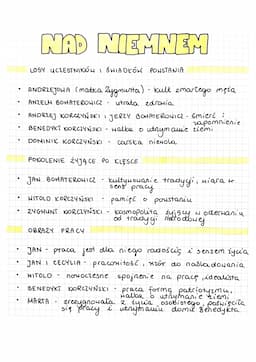 NAD NIEMNEM
LOSY UCZESTNIKÓW I ŚWIADKÓW POWSTANIA
• ANDRZEJOWA (matka Zygmunta) - kult zmarłego męża
• ANZELM BOHATEROWICZ - utrata zdrowia
• ANDRZEJ KORCZYŃSKI I JERZY BOHATEROWICZ - śmierć i
zapomnienie
• BENEDYKT KORCZYŃSKI - walka o utrzymanie ziemi
• DOMINIK KORCZYŃSKI - carska niewola
POKOLENIE ŻYJĄCE PO KLĘSCE
• JAN BOHATEROWICZ - kultywowanie tradycji, wiara w
sens pracy
• WITOLD KORCZYŃSKI - pamięć o powstaniu
• ZYGMUNT KORCZYŃSKI - kosmopolita żyjący w oderwaniu
od tradycji narodowej
OBRAZY PRACY
• JAN - praca jest dla niego radością i sensem życia
• JAN I CECYLIA - pracowitość, wzór do naśladowania
• WITOLD - nowoczesne spojrzenie na pracę, idealista
• BENEDYKT KORCZYŃSKI - praca formą patriotyzmu,
walka o utrzymanie ziemi
• MARTA - zrezygnowała z życia osobistego, poświęciła
się pracy i utrzymaniu domu Benedykta